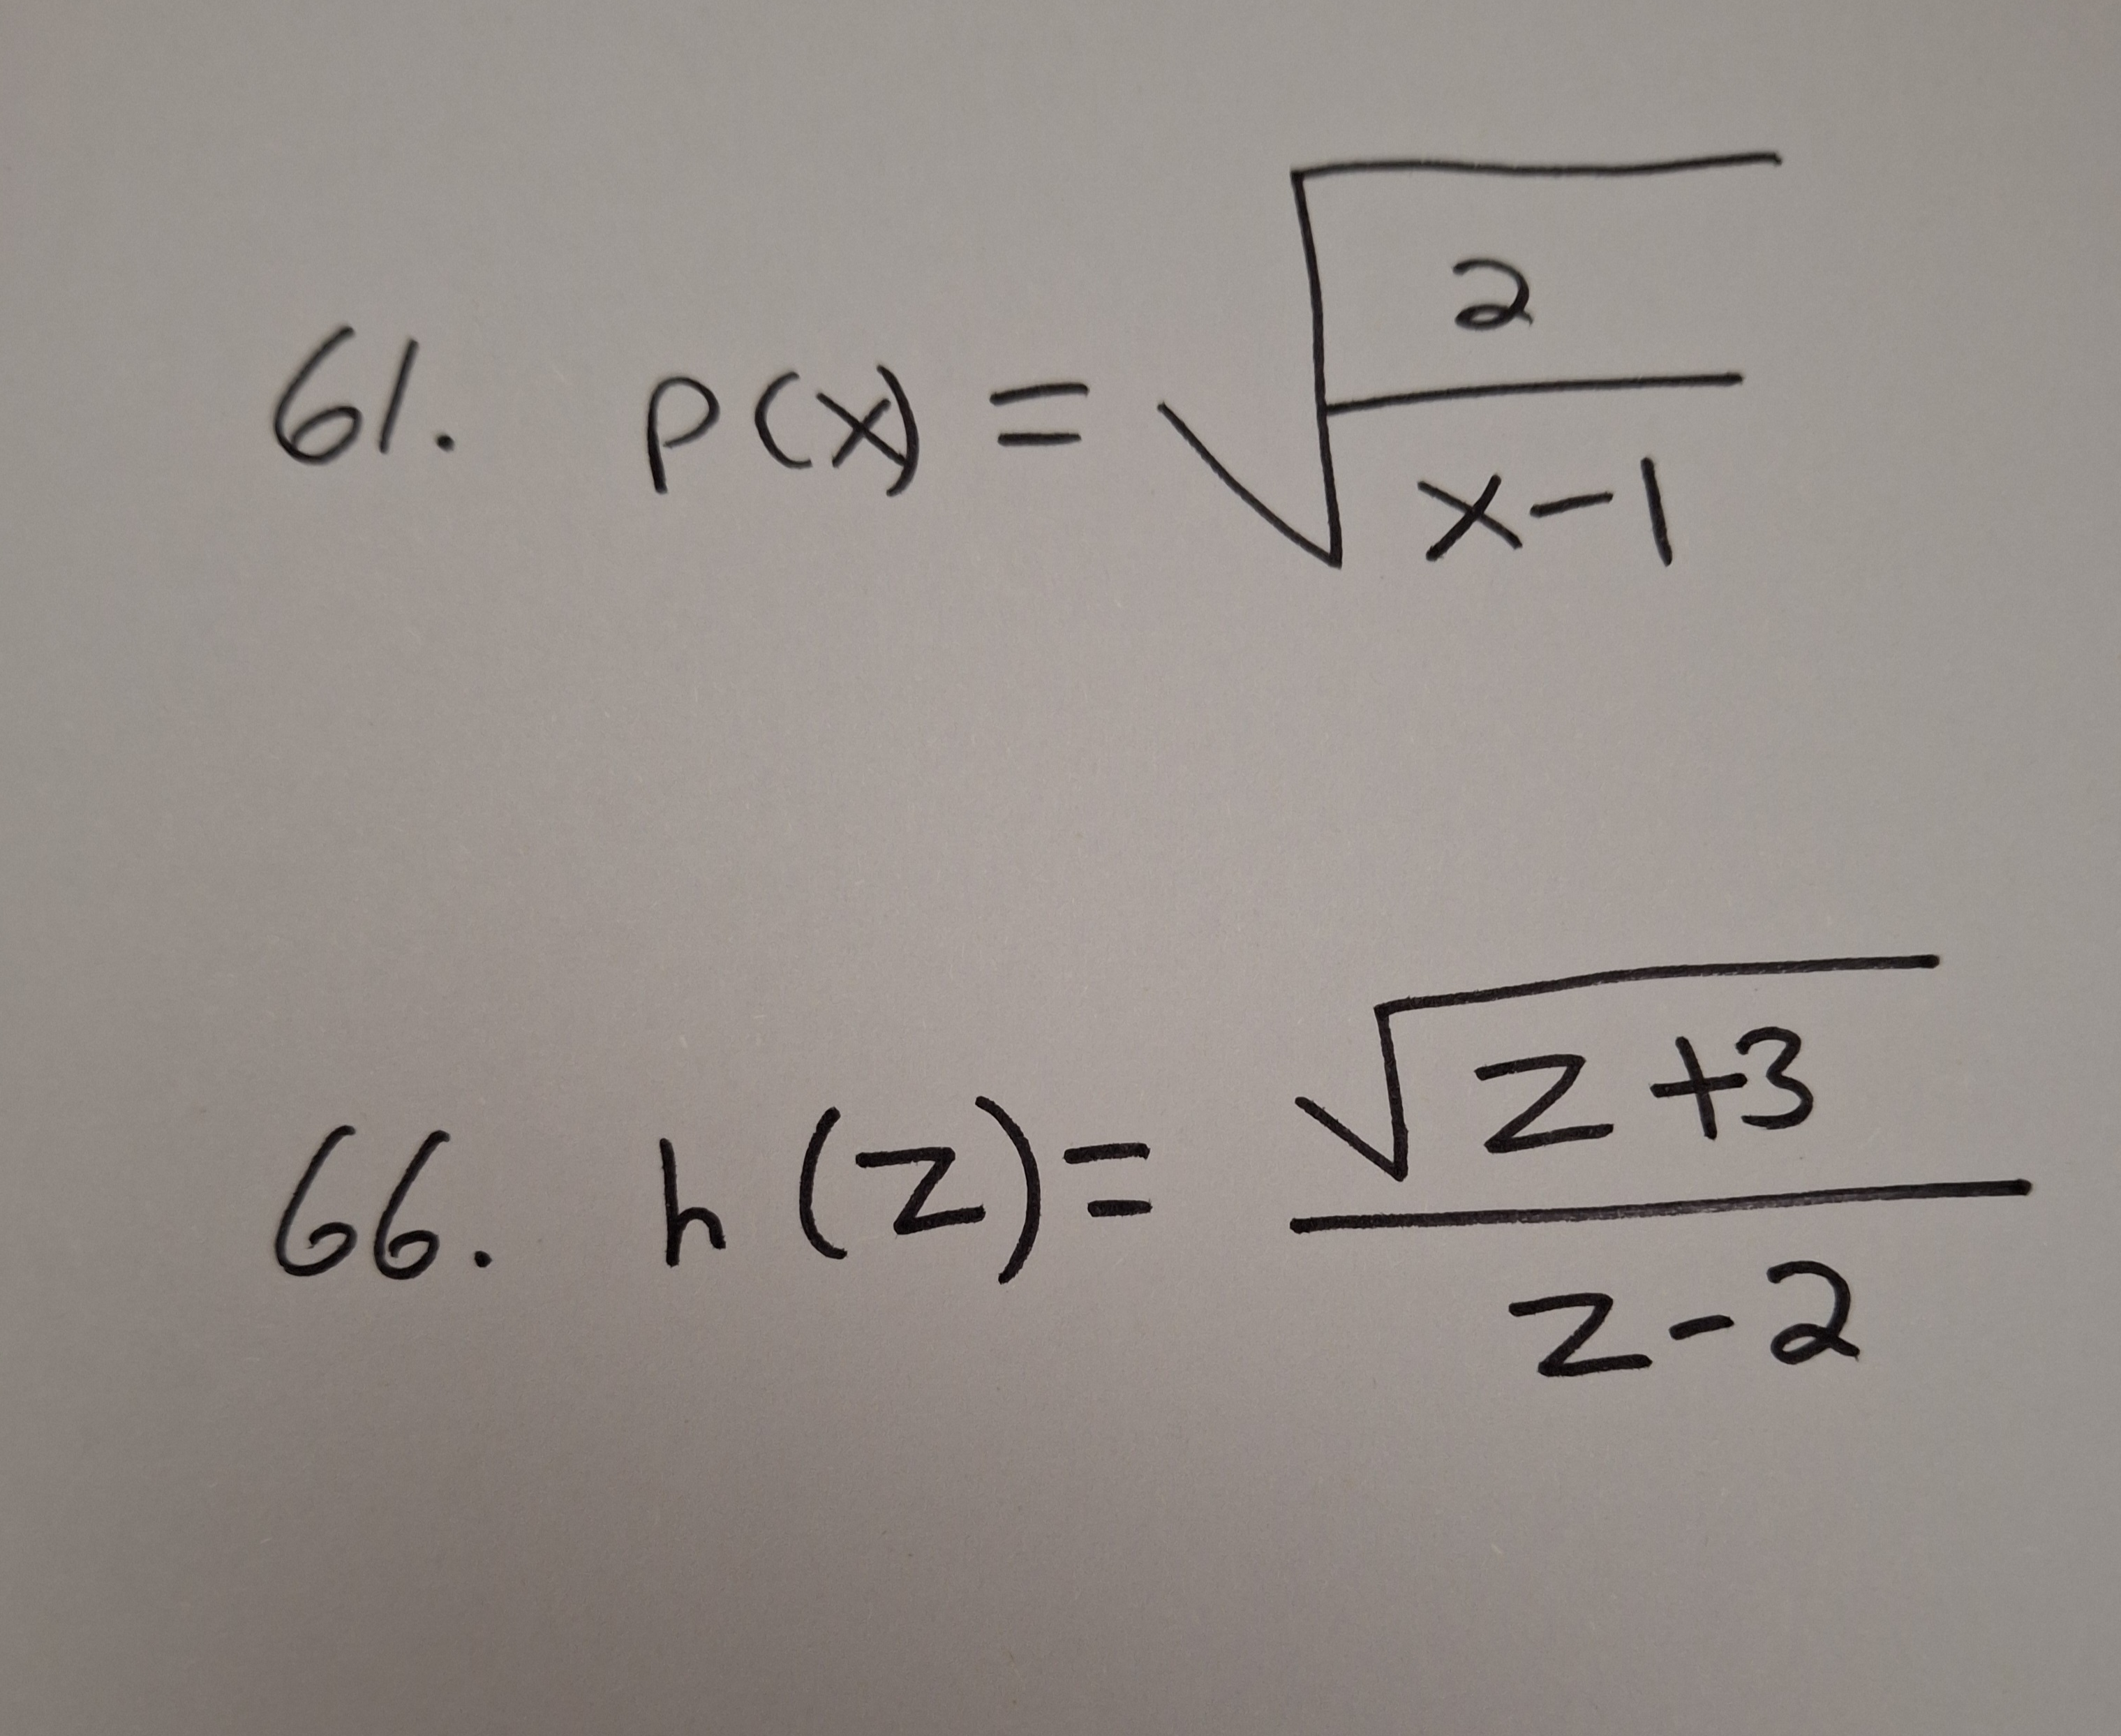 61. p(x) = √(2/(x-1))
66. h(z) = √(z+3)/(z-2)